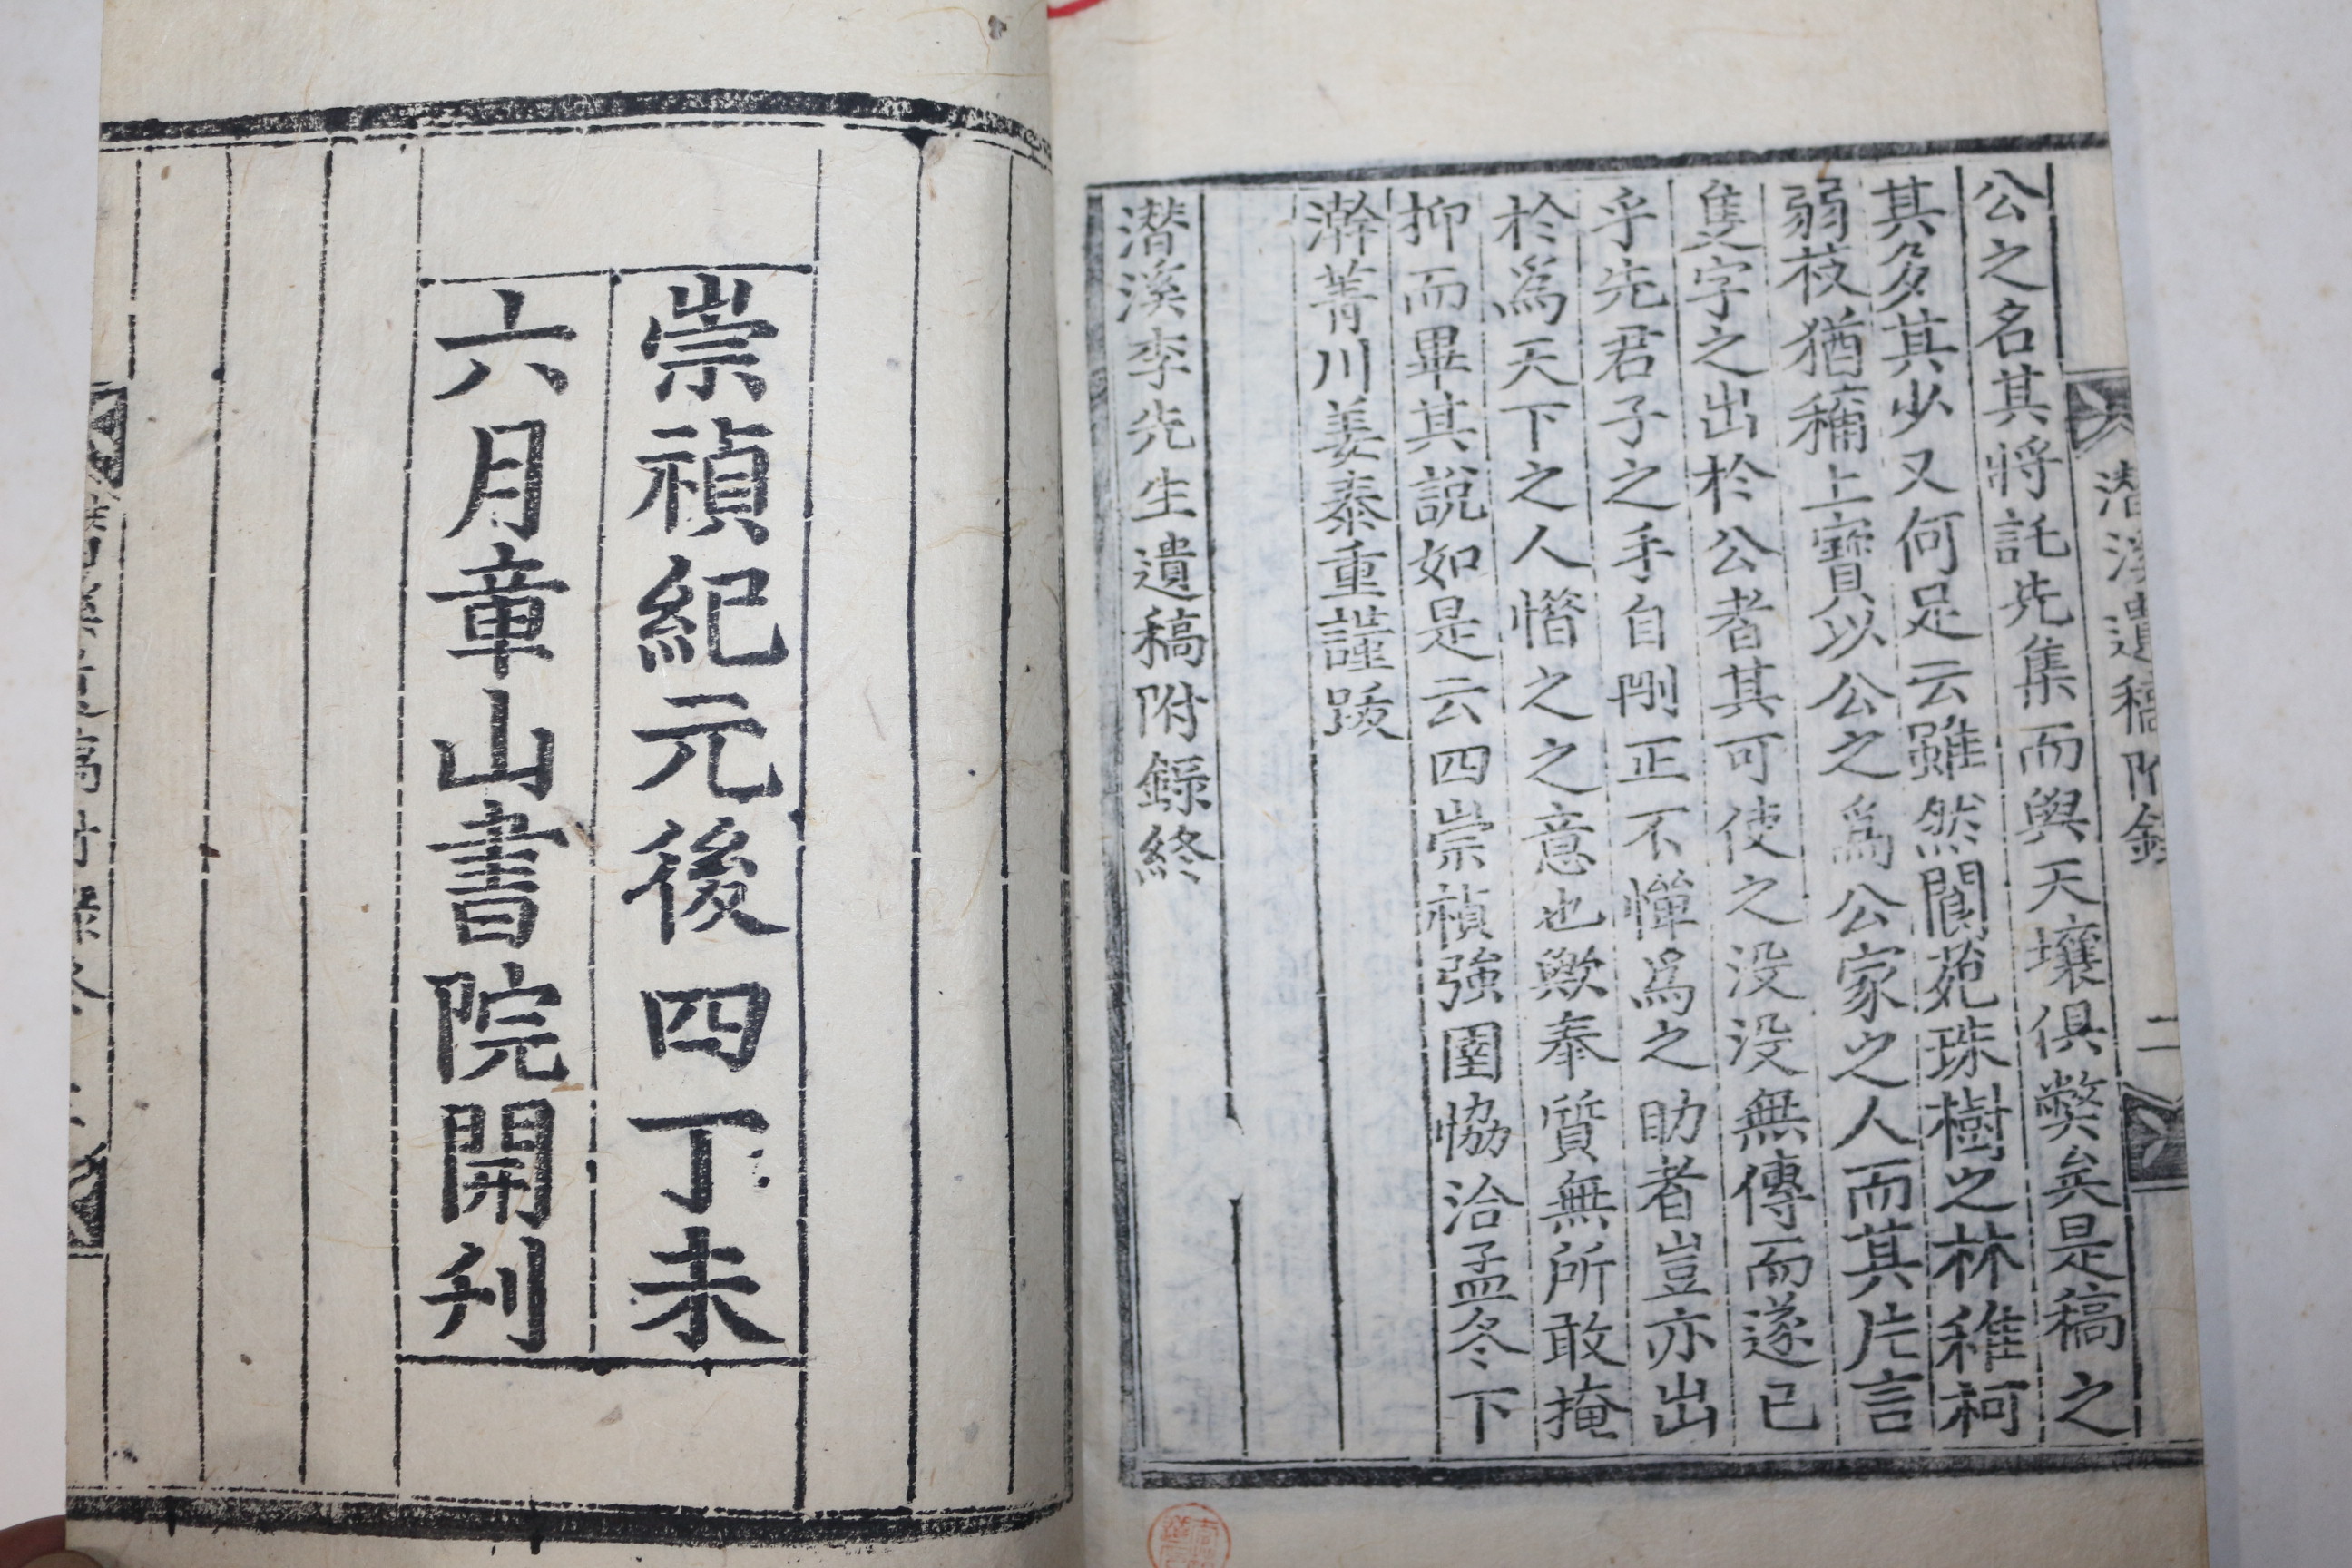 潛溪遺稿附錄 二
公之名其將託先集而與天壤俱弊矣是稿之
其多其少又何足云雖然閬苑珠樹之林稚柯
弱枝猶稱上寶以公之爲公家之人而其片言
隻字之出於公者其可使之沒沒無傳而遂已
乎先君子之手自剛正不憚爲之助者豈亦出
於爲天下之人惜之之意也歟奉質無所敢掩
抑而畢其說如是云四崇禎強圉協洽孟冬下
澣菁川姜泰重謹跋
潛溪李先生遺稿附錄終
崇禎紀元後四丁未
六月章山書院開刊